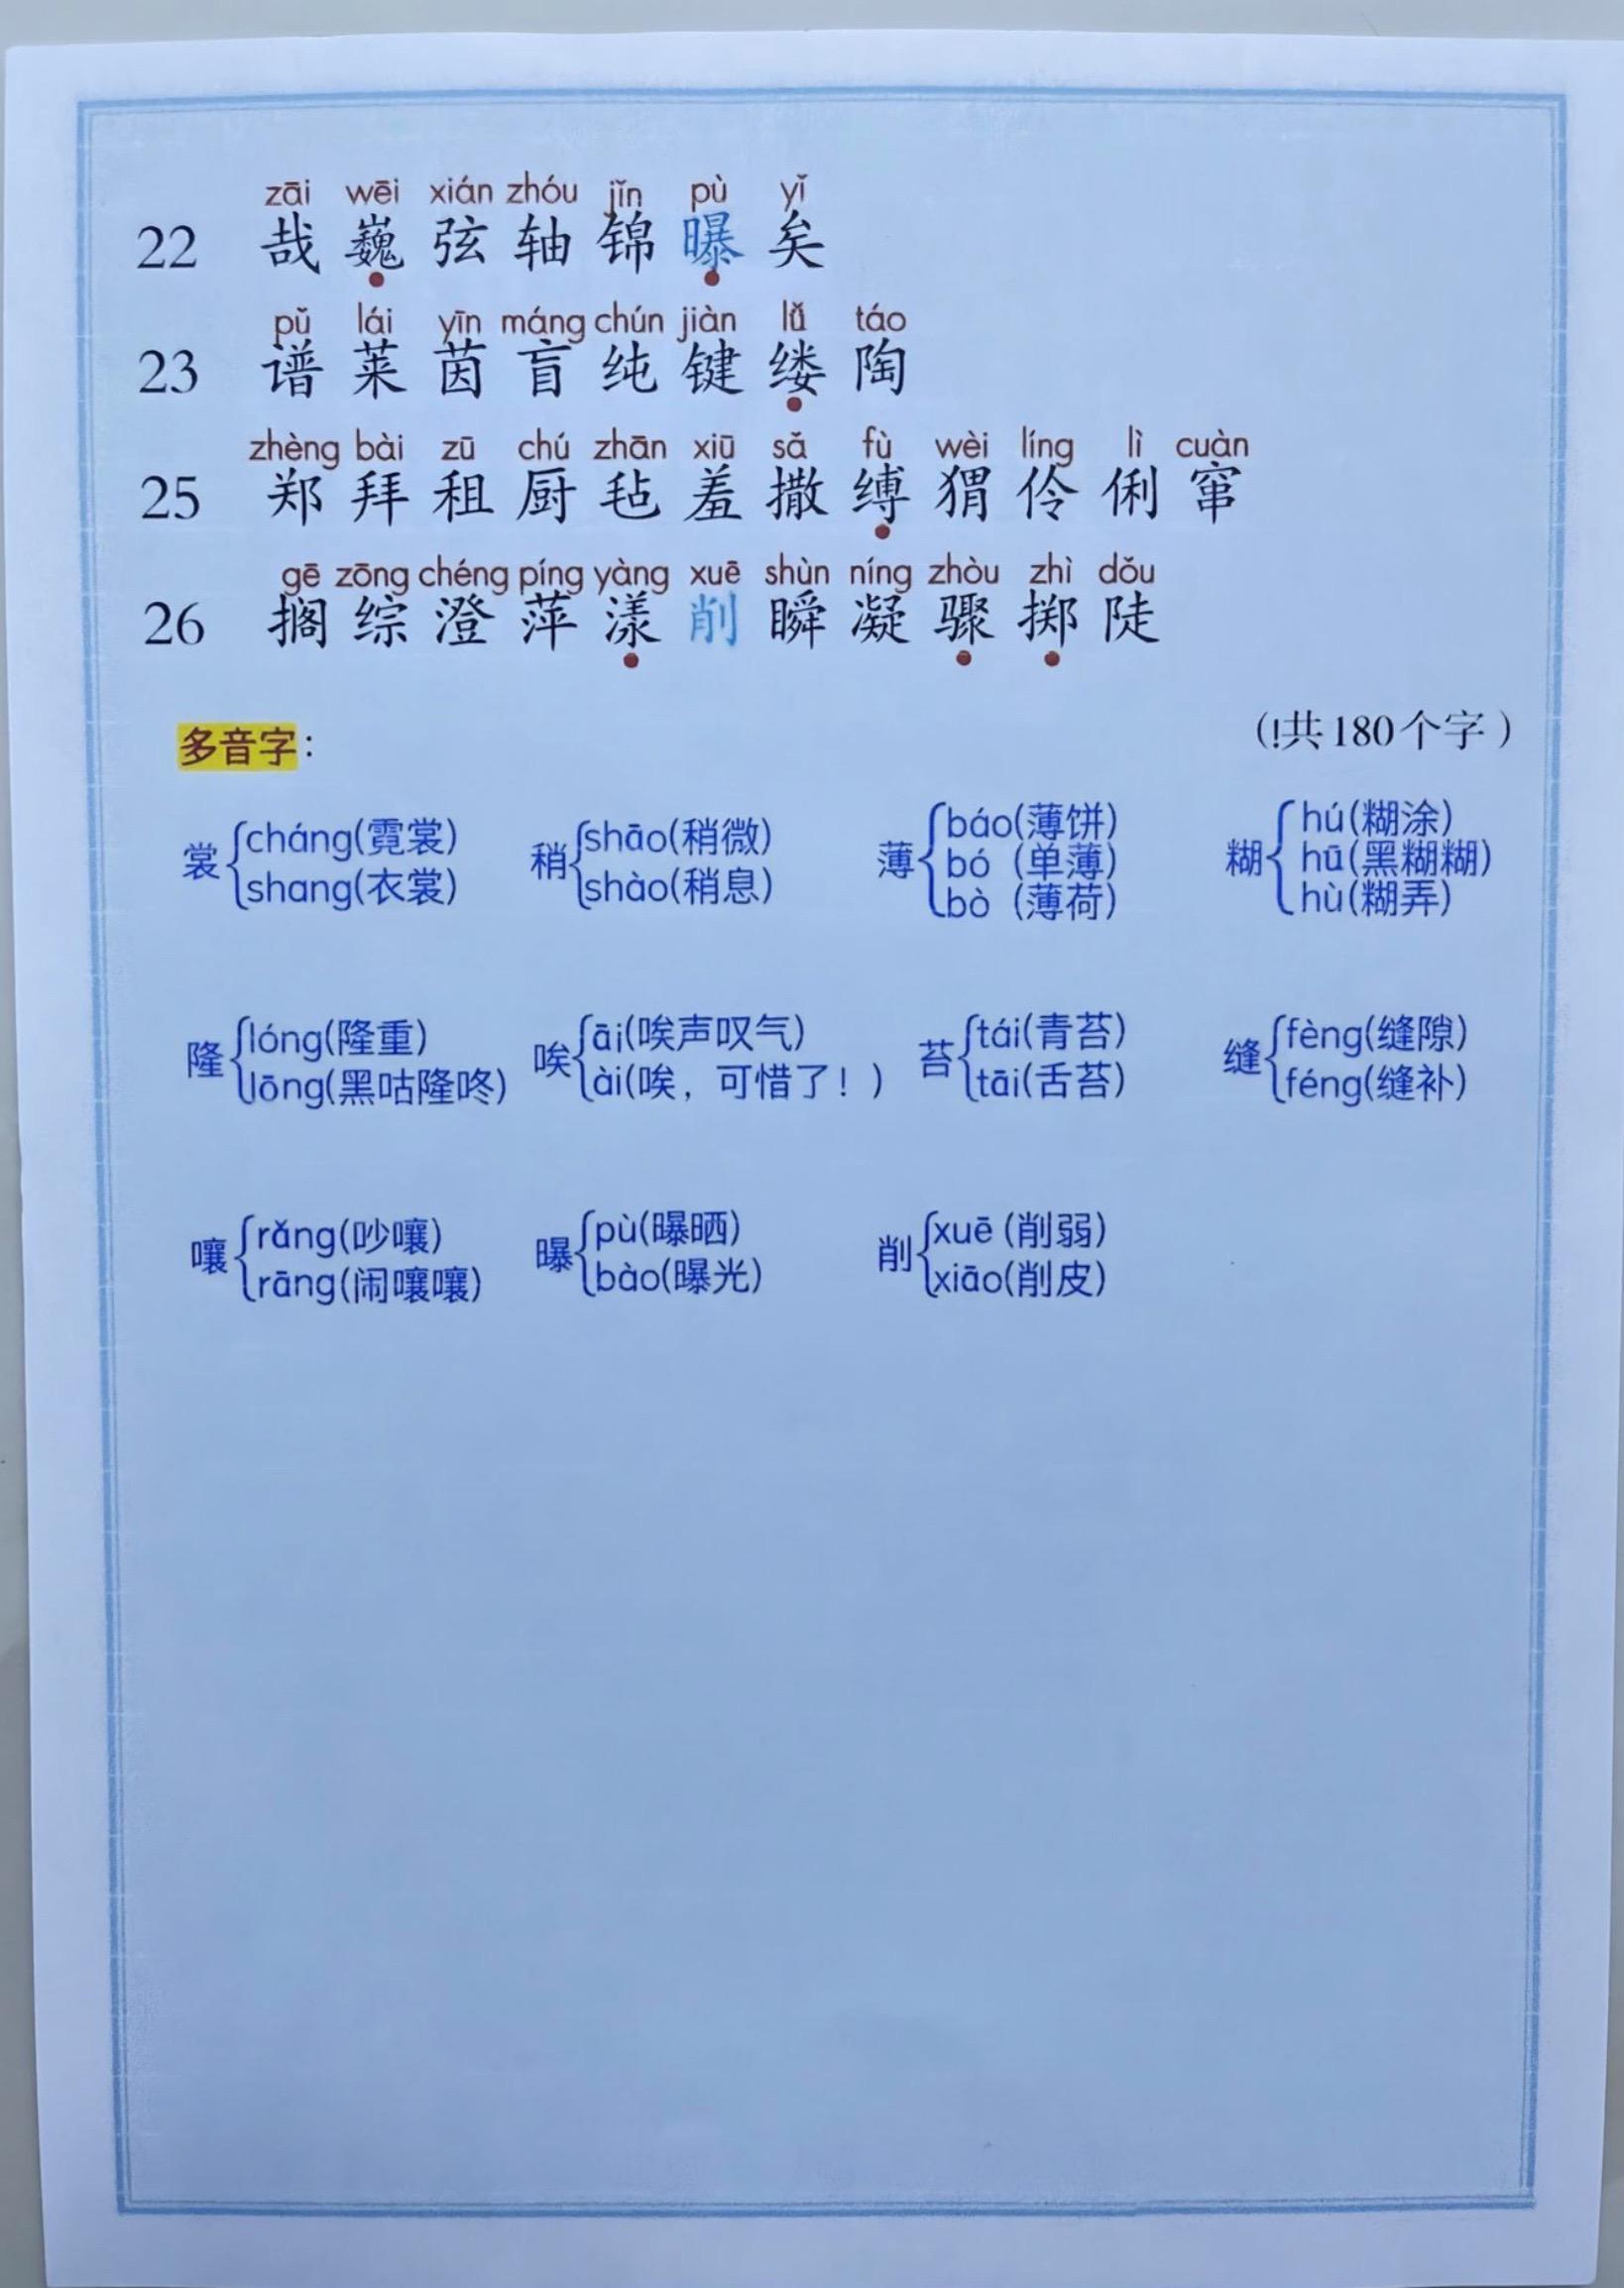 zāi wēi xián zhóu jǐn pù yǐ
22 哉 巍 弦 轴 锦 曝 矣
pǔ lái yīn máng chún jiàn lǚ táo
23 谱 莱 茵 盲 纯 键 缕 陶
zhèng bài zū chú zhān xiū sǎ fù wèi líng lì cuàn
25 郑 拜 租 厨 毡 羞 撒 缚 猬 伶 俐 窜
gē zōng chéng píng yàng xuē shùn níng zhòu zhì dǒu
26 搁 综 澄 萍 漾 削 瞬 凝 骤 掷 陡
(!共180个字)
多音字:
裳 cháng(霓裳)
shang(衣裳)
稍 shāo(稍微)
shào(稍息)
薄 báo(薄饼)
bó (单薄)
bò (薄荷)
糊 hú(糊涂)
hū(黑糊糊)
hù(糊弄)
隆 lóng(隆重)
lōng(黑咕隆咚)
唉 āi(唉声叹气)
ài(唉，可惜了！)
苔 tái(青苔)
tāi(舌苔)
缝 fèng(缝隙)
féng(缝补)
嚷 rǎng(吵嚷)
rāng(闹嚷嚷)
曝 pù(曝晒)
bào(曝光)
削 xuē (削弱)
xiāo(削皮)